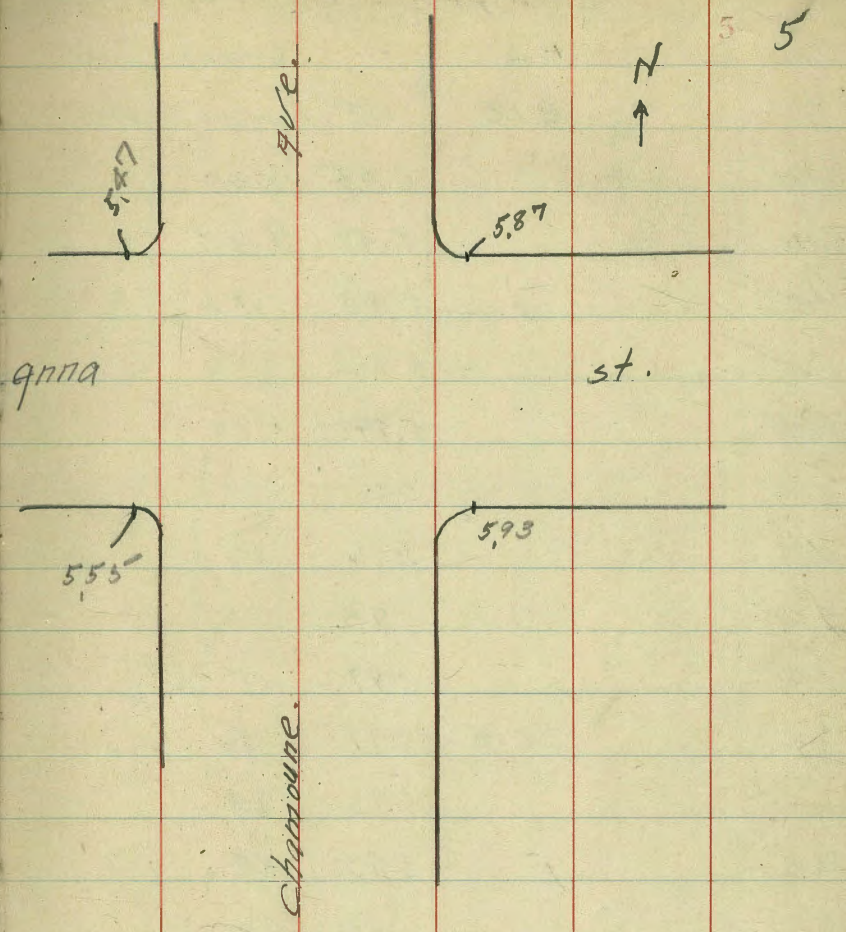 3 5
N
Ave.
5,47
5,87
anna
st.
5,55
5,93
Chamoune.